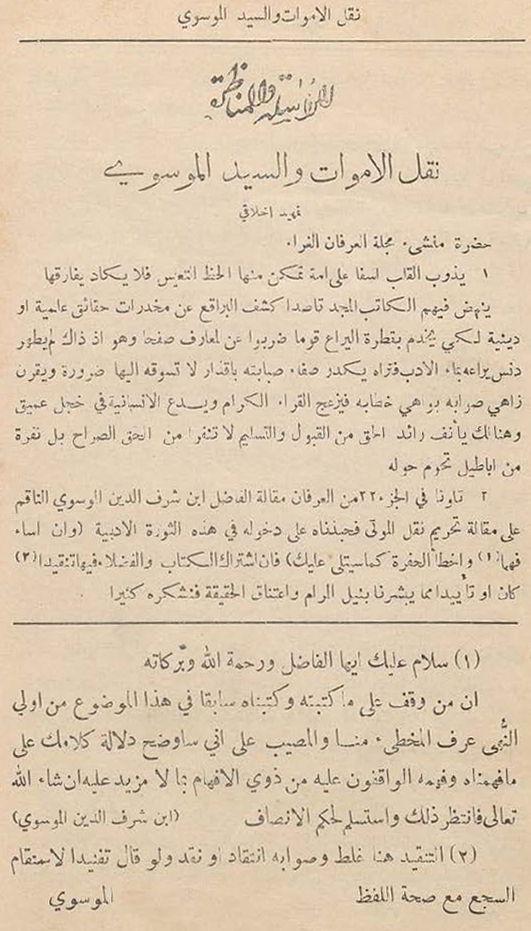 نقل الاموات والسيد الموسوي
المراسلة والمناظرة
نقل الاموات والسيد الموسوي
تمهيد اخلاقي
حضرة منشىء مجلة العرفان الغراء
١ يذوب القلب اسفا على امة تمكن منها الحظ التعيس فلا يكاد يفارقها
ينهض فيهم الكاتب المجد قاصدا كشف البراقع عن مخدرات حقائق علمية او
دينية لكي يخدم بقطرة اليراع قوما ضربوا عن المعارف صفحا وهو اذ ذاك لم يطهر
دنس يراعه بماء الادب فتراه يكدر صفاء صبابته باقذار لا تسوقه اليها ضرورة ويقرن
زاهي صوابه بواهي خطابه فيزعج القراء الكرام ويدع الانسانية في خجل عميق
وهنالك يأنف رائد الحق من القبول والتسليم لا تنفرا من الحق الصراح بل نفرة
من اباطيل تحوم حوله
٢ تلونا في الجزء ٢٢ من العرفان مقالة الفاضل ابن شرف الدين الموسوي الناقم
على مقالة تحريم نقل الموتى فحبذناه على دخوله في هذه الثورة الادبية (وان اساء
فهما (١) واخطأ الحفرة كما سيتلى عليك) فان اشتراك الكتاب والفضلاء فيها تنقيدا (٢)
كان او تأييدا مما يبشرنا بنيل المرام واعتناق الحقيقة فنشكره كثيرا
(١) سلام عليك ايها الفاضل ورحمة الله وبركاته
ان من وقف على ما كتبته وكتبناه سابقا في هذا الموضوع من اولي
النُّهى عرف المخطىء منا والمصيب على اني ساوضح دلالة كلامك على
ما فهمناه وفهمه الواقفون عليه من ذوي الافهام بما لا مزيد عليه ان شاء الله
تعالى فانتظر ذلك واستسلم لحكم الانصاف (ابن شرف الدين الموسوي)
(٢) التنقيد هنا غلط وصوابه انتقاد او نقد ولو قال تفنيدا لاستقام
السجع مع صحة اللفظ الموسوي